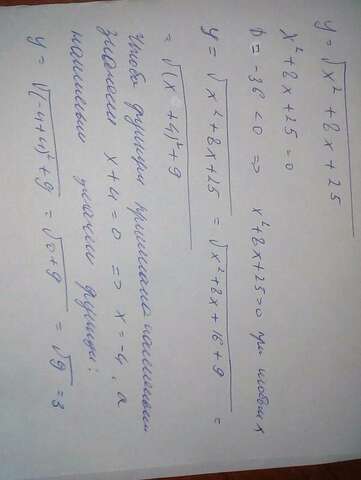 y = √(x² + 8x + 25)
x² + 8x + 25 = 0
D = -36 < 0 => x² + 8x + 25 > 0 при любых x
y = √(x² + 8x + 25) = √(x² + 8x + 16 + 9) =
= √((x + 4)² + 9)
Чтобы функция принимала наименьшее
значение x + 4 = 0 => x = -4, а
наименьшее значение функции:
y = √((-4+4)² + 9) = √(0+9) = √9 = 3